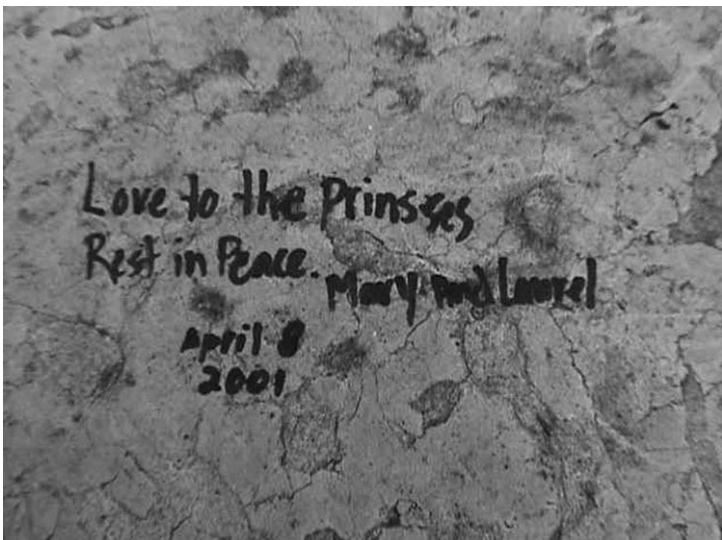 Love to the Prinsses
Rest in Peace.
Mary And Laurel
April 8
2001